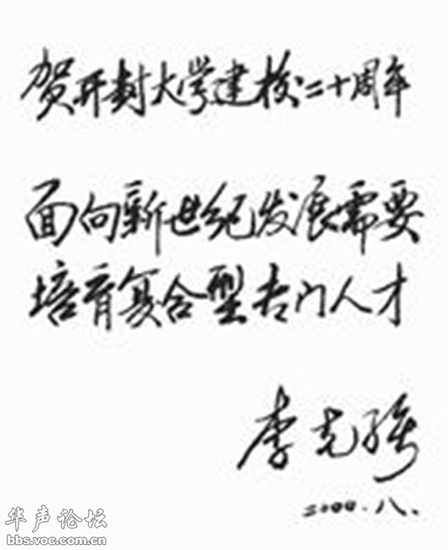 贺开封大学建校二十周年
面向新世纪发展需要
培育复合型专门人才
李克强
2000.八.
华声论坛
bbs.voc.com.cn